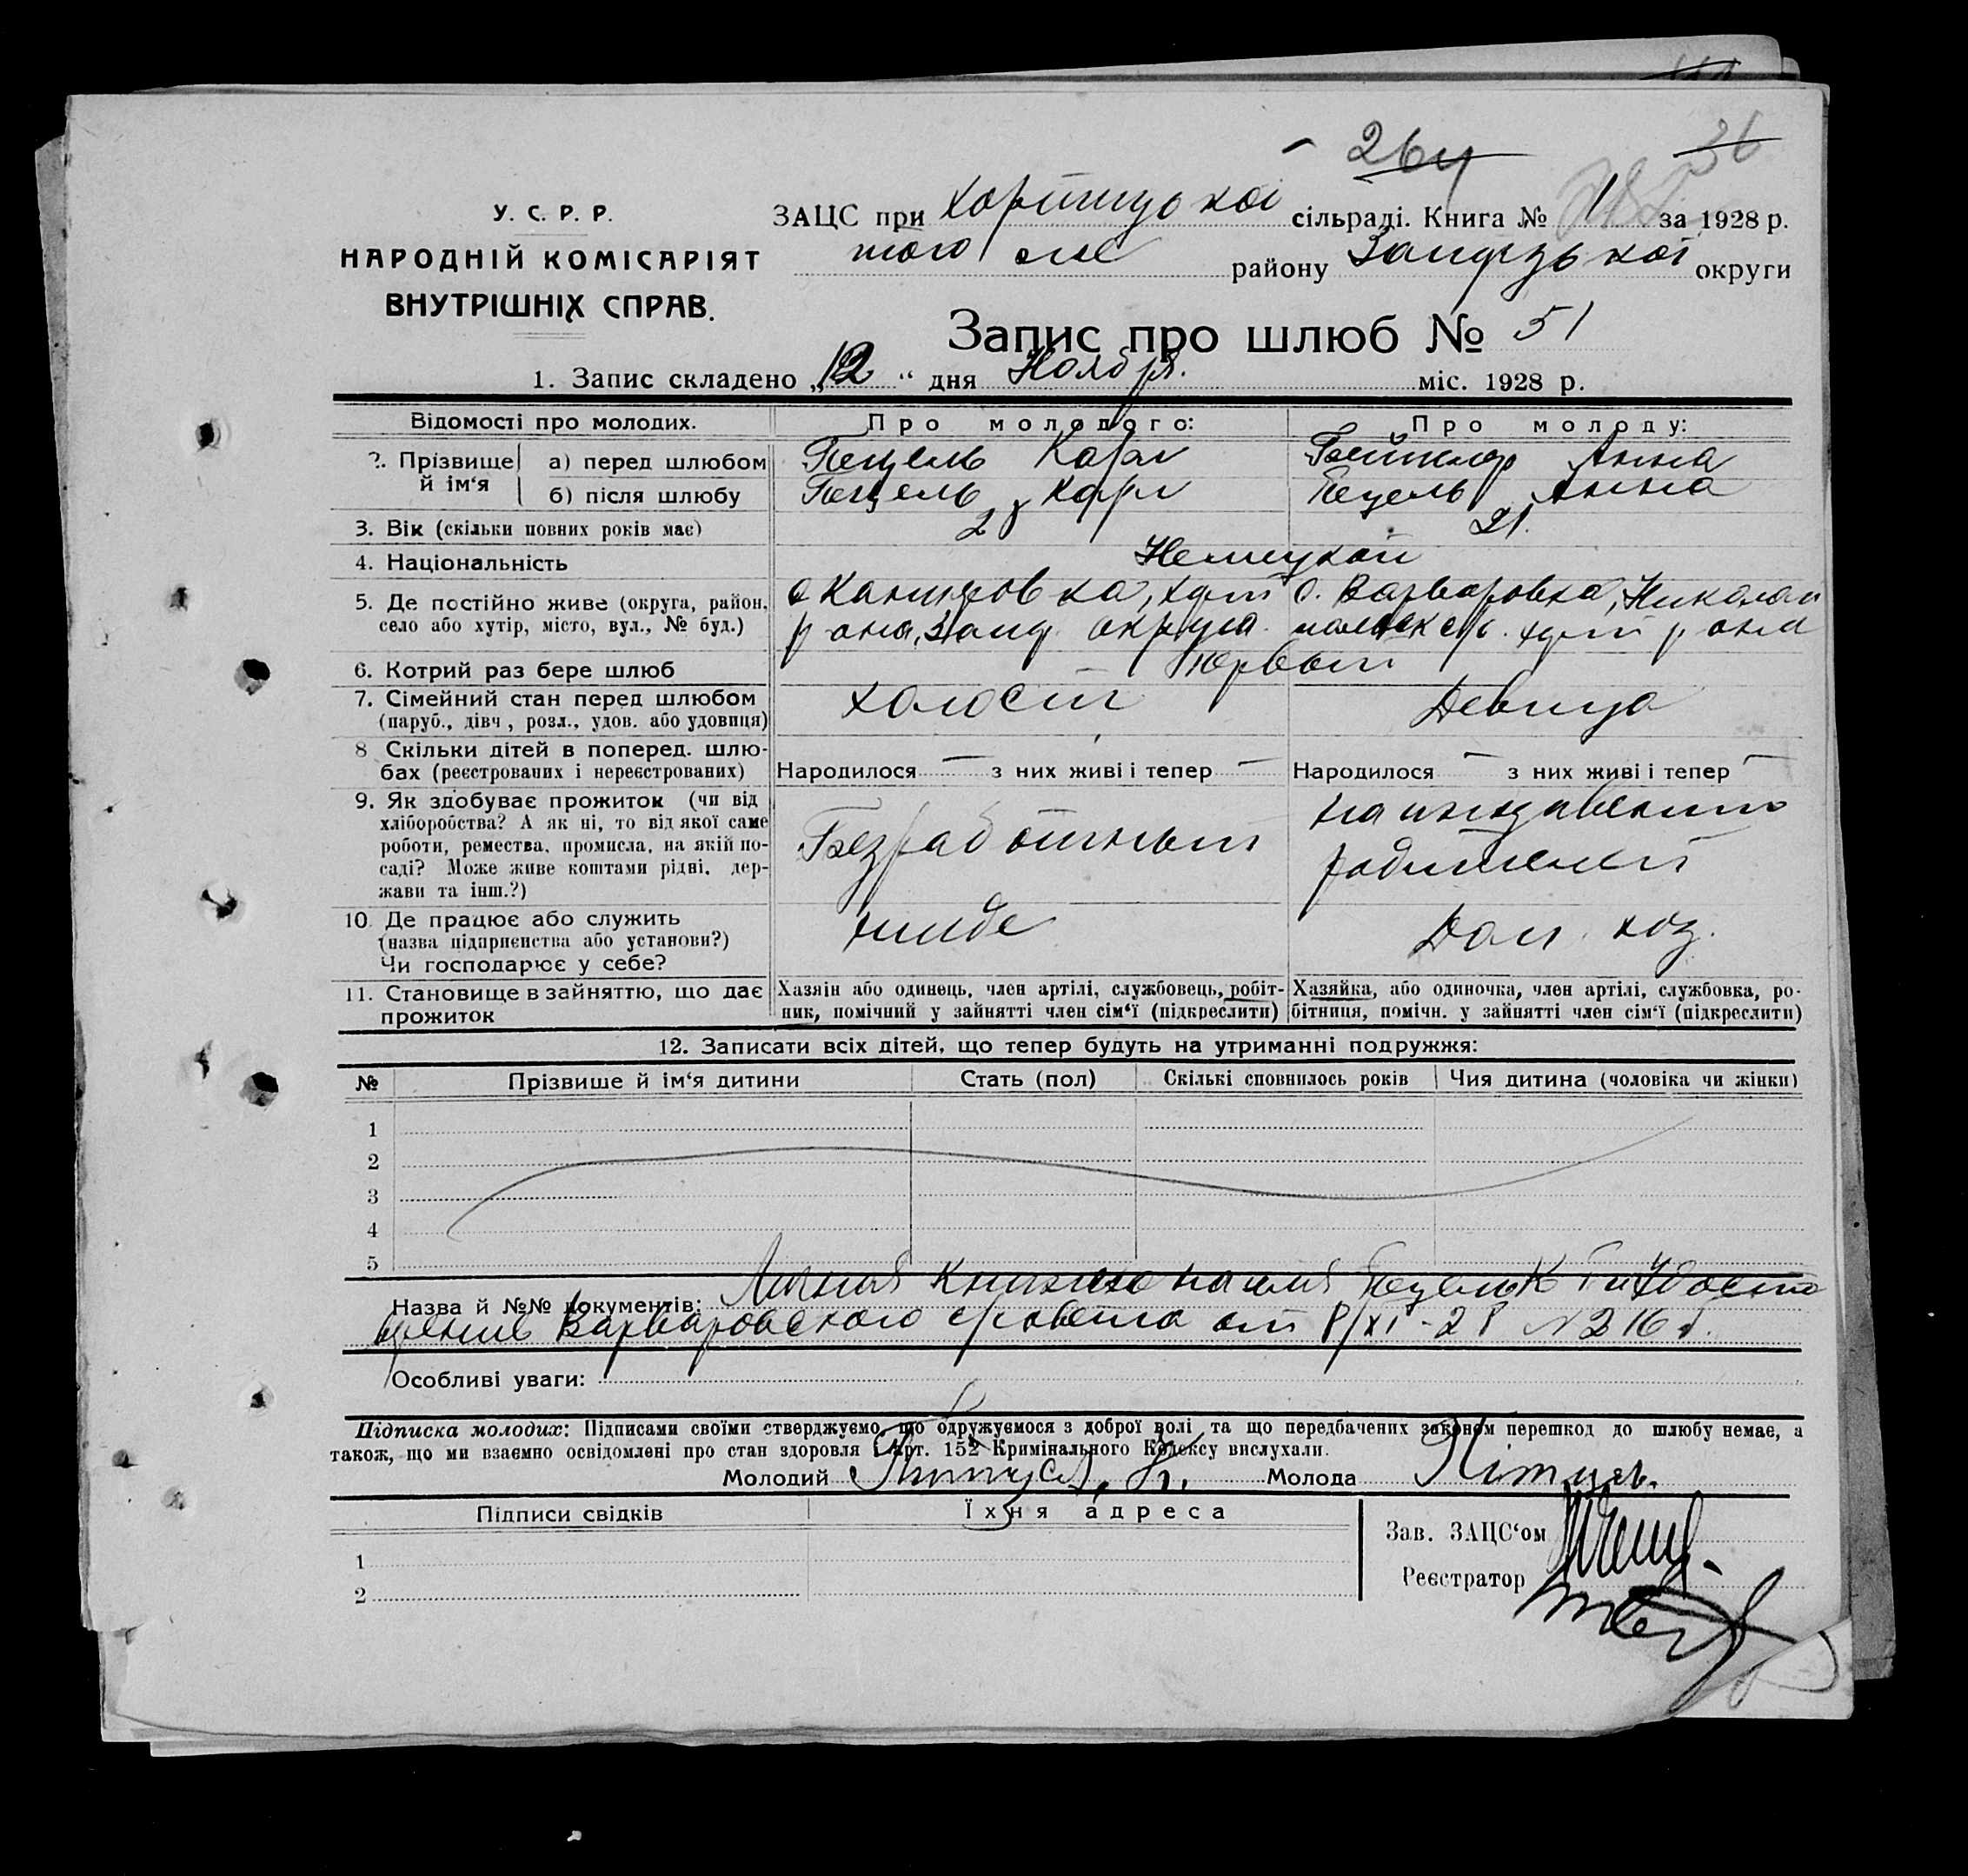 264
36
У. С. Р. Р.
НАРОДНІЙ КОМІСАРІЯТ
ВНУТРІШНІХ СПРАВ.
ЗАЦС при Хортицької сільраді. Книга № 1 за 1928 р.
того же району Запорізької округи
Запис про шлюб № 51
1. Запис складено „12“ дня Ноября міс. 1928 р.
Відомості про молодих. Про молодого: Про молоду:
2. Прізвище й ім‘я
а) перед шлюбом Пецель Карл Анна
б) після шлюбу Пецель Карл Пецель Анна
3. Вік (скільки повних років має) 21.
4. Національність Немецкой
5. Де постійно живе (округа, район, село або хутір, місто, вул., № буд.)
с. Канцеровка, Хорт
района, Запор округа
с. Варваровка, Николай
польск с/с. Хорт района
6. Котрий раз бере шлюб Первый
7. Сімейний стан перед шлюбом
(паруб., дівч., розл., удов. або удовиця)
холост Девица
8 Скільки дітей в поперед. шлюбах (реєстрованих і нереєстрованих)
Народилося — з них живі і тепер — Народилося — з них живі і тепер —
9. Як здобуває прожиток (чи від
хліборобства? А як ні, то від якої саме
роботи, ремества, промисла, на якій по-
саді? Може живе коштами рідні, дер-
жави та інш.?)
Безработный
на иждивении
родителей
10. Де працює або служить
(назва підприєнства або установи?)
Чи господарює у себе?
нигде Дом. хоз.
11. Становище в зайняттю, що дає
прожиток
Хазяїн або одинець, член артілі, службовець, робіт-
ник, помічний у зайнятті член сім‘ї (підкреслити)
Хазяйка, або одиночка, член артілі, службовка, ро-
бітниця, помічн. у зайнятті член сім‘ї (підкреслити)
12. Записати всіх дітей, що тепер будуть на утриманні подружжя:
№ Прізвище й ім‘я дитини Стать (пол) Скількі сповнилось років Чия дитина (чоловіка чи жінки)
1
2
3
4
5
Назва й №№ документів: Личная книжка на имя Пецель К Г и Удосто
верение Варваровского с/совета от 8/XI-28 N 216
Особливі уваги:
Підписка молодих: Підписами своїми стверджуємо, що одружуємося з доброї волі та що передбачених законом перешкод до шлюбу немає, а
також, що ми взаємно освідомлені про стан здоровля і арт. 152 Кримінального Кодексу вислухали.
Молодий Молода
Підписи свідків Їхня адреса
1
2
Зав. ЗАЦС‘ом
Реєстратор